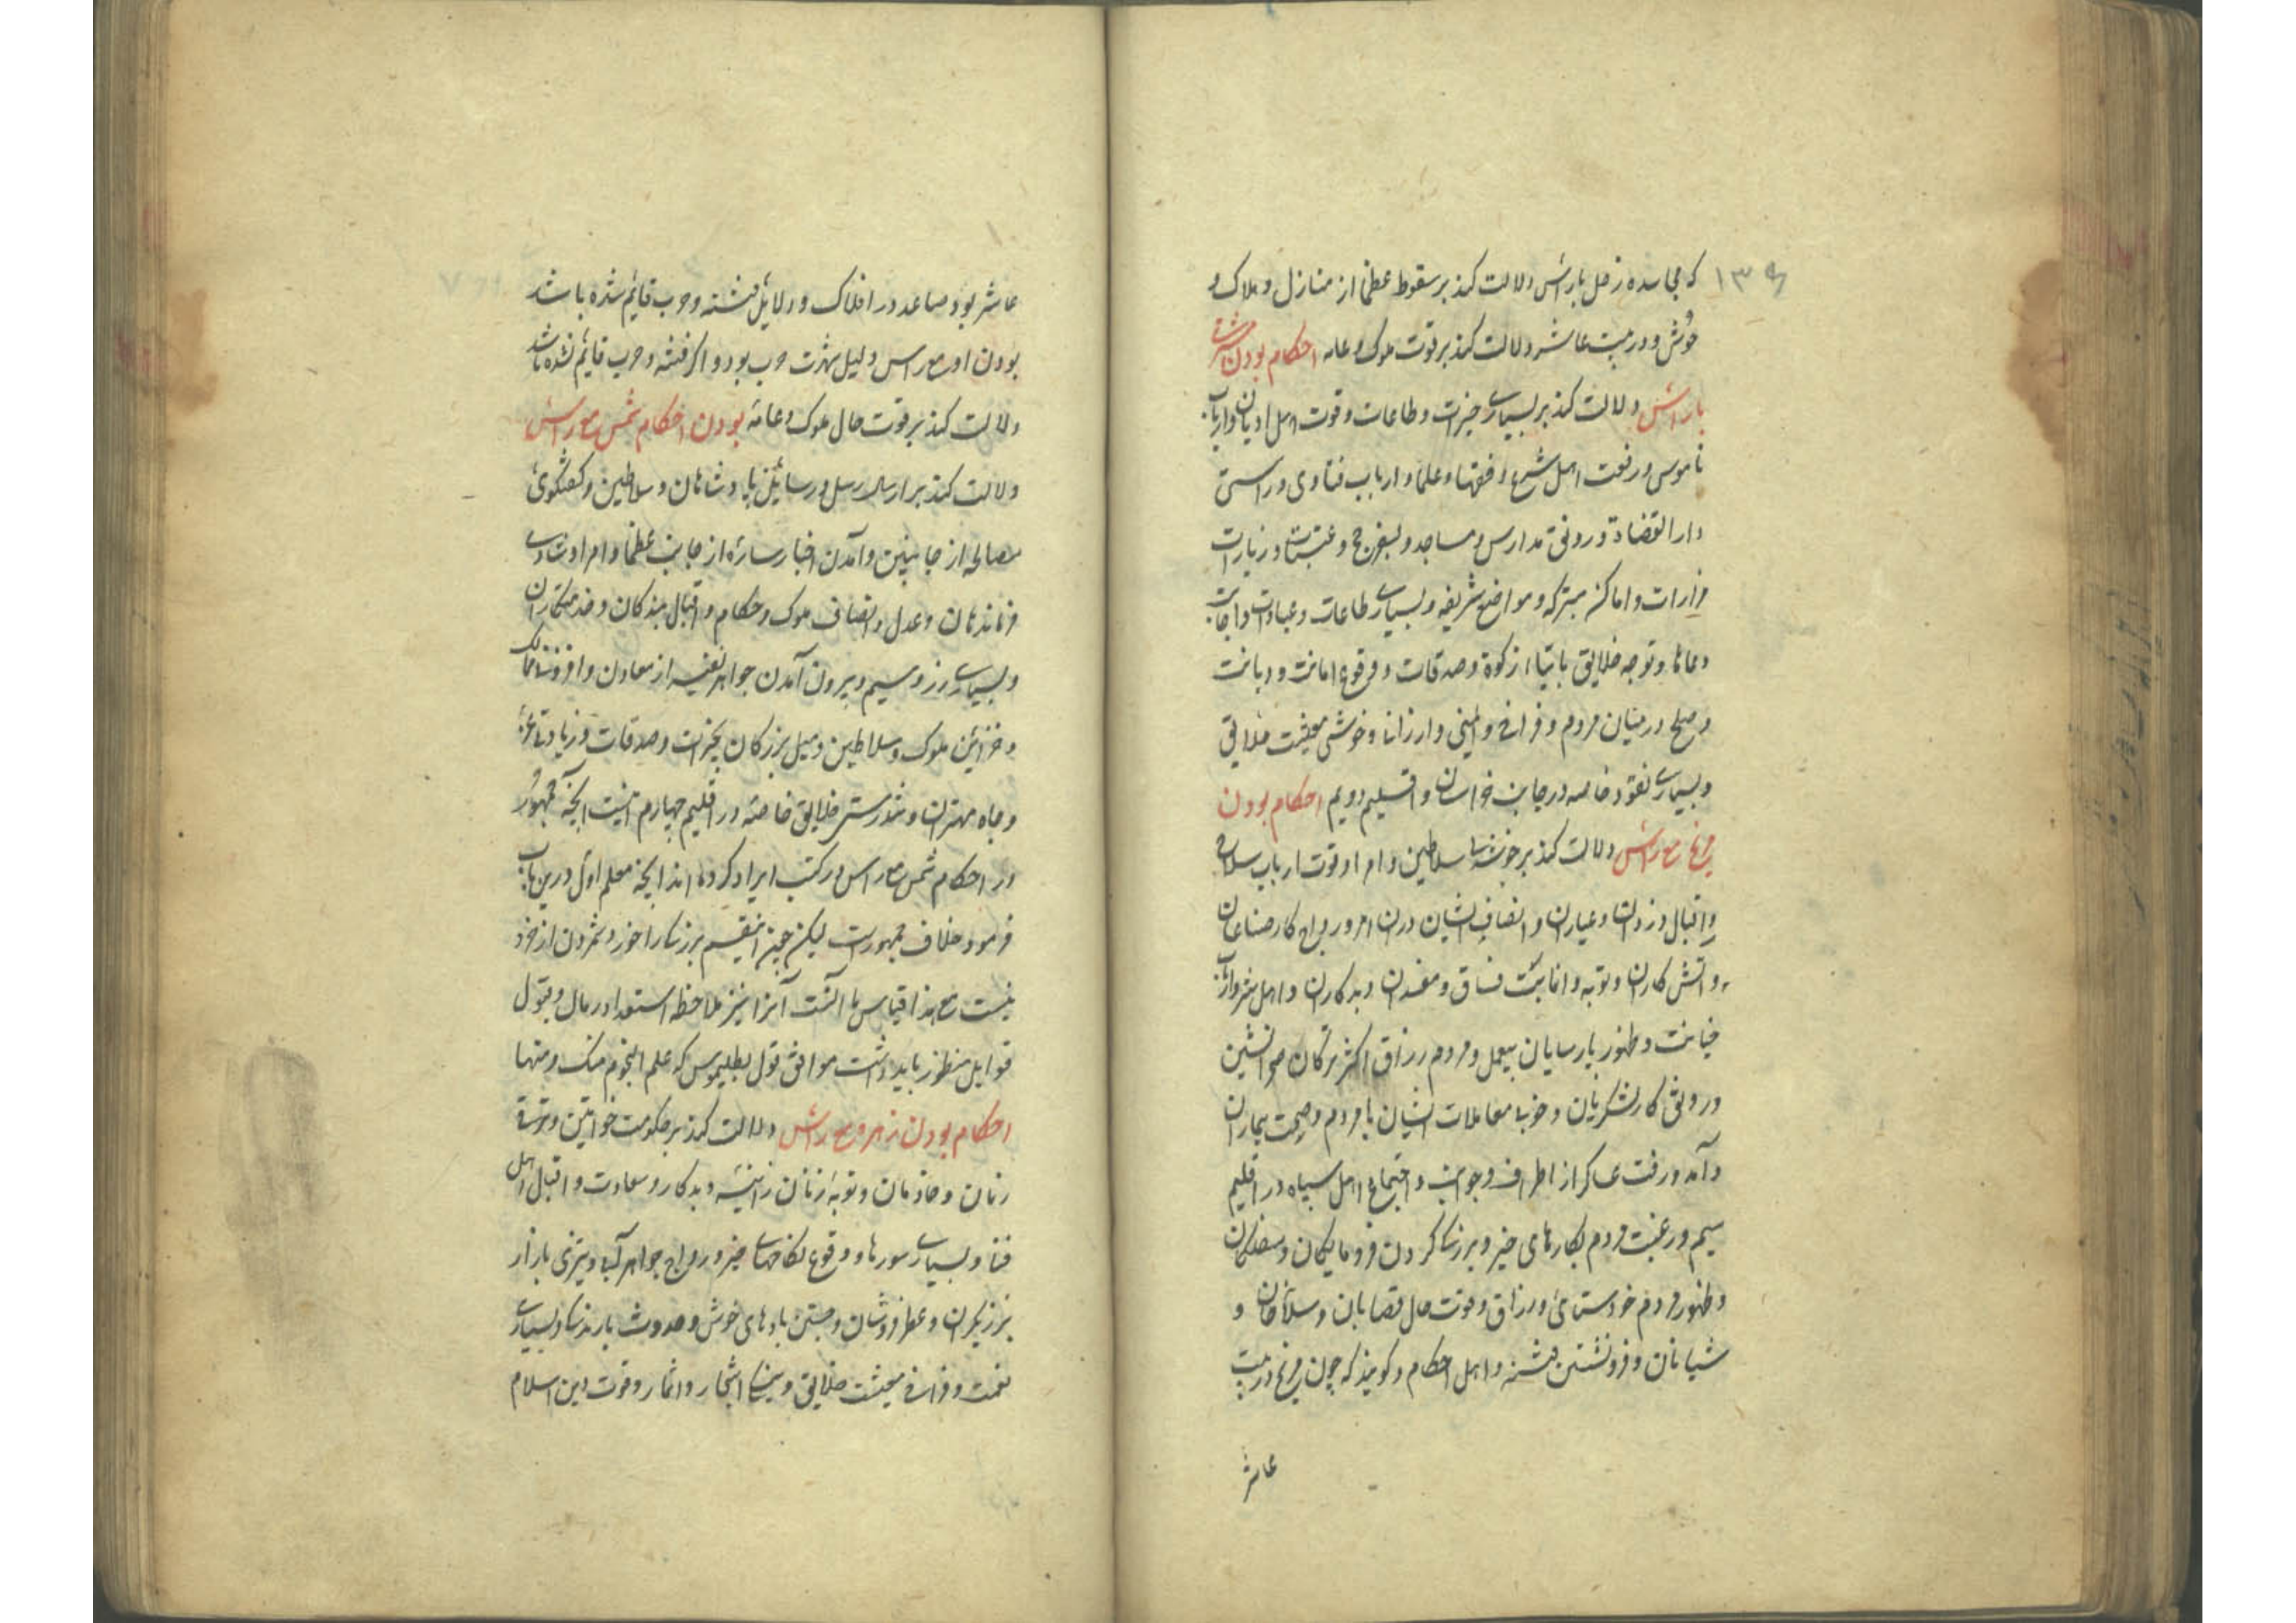 ۱۳۶
که مجاسده زحل باراس دلالت کند بر سقوط عظما از منازل و هلاک و
حوش و در بیت عاشر دلالت کند بر قوت ملوک و عامه احکام بودن مشتری
باراس دلالت کند بر بسیاری خیرات و طاعات و قوت اهل ادیان و ارباب
ناموس و رفعت اهل شرع و فقها و علما و ارباب فتاوی و راستی
دار القضاة و رونق مدارس و مساجد و سفر حج و عتبات و زیارات
مزارات و اماکن متبرکه و مواضع شریفه و بسیاری طاعات و عبادات و اجابت
دعاها و توجه خلایق بایتاء زکوة و صدقات و وقوع امانت و دیانت
و صلح در میان مردم و فراخی و ایمنی و ارزانی و خوشی معیشت خلایق
و بسیاری نقود خاصه در جانب خراسان و اقلیم دویم احکام بودن
مریخ مع راس دلالت کند بر خوشی سلاطین و امرا و قوت ارباب سلاح
و اقبال دزدان و عیاران و انصاف ایشان در امور و رواج کار صناعان
و آتش کاران و توبه و انابت فساق و مفسدان و بدکاران و اهل شر و ارباب
خیانت و ظهور پارسایان بیعمل و مردم رزاق اکثر ترکان صحرانشین
و رونق کار لشکریان و خوبی معاملات ایشان با مردم و صحت بیماران
و آمد و رفت عساکر از اطراف و جوانب و اجتماع اهل سپاه در اقلیم
سیم و رغبت مردم بکارهای خیر و بزرگی کردن فرومایگان و سفلگان
و ظهور مردم خودستای و رزاق و قوت حال قصابان و سلاخان و
شبانان و فرونشستن فتنه و اهل احکام گویند که چون مریخ در بیت
عاشر
عاشر بود صاعد در افلاک و دلایل فتنه و حرب قایم شده باشد
بودن او مع راس دلیل شهرت حرب بود و اگر فتنه و حرب قایم نشده باشد
دلالت کند بر قوت حال ملوک و عامه بودن احکام شمس مع راس
دلالت کند بر ارسال رسل و رسایل پادشاهان و سلاطین و گفتگوی
مصالحه از جانبین و آمدن اخبار ساره از جانب عظما و امرا و شادی
فرماندهان و عدل و انصاف ملوک و حکام و اقبال بندگان و خدمتکاران
و بسیاری زر و سیم و بیرون آمدن جواهر نفیسه از معادن و افزونی ممالک
و خزاین ملوک و سلاطین و میل بزرگان بخیرات و صدقات و زیادتی عز
و جاه مهتران و تندرستی خلایق خاصه در اقلیم چهارم اینست آنچه جمهور
در احکام شمس مع راس در کتب ایراد کرده اند آنچه معلم اول درین باب
فرمود خلاف جمهورست لیکن چیز اینقسم بزرگی را خورد شمردن از خرد
نیست مع هذا قیاس با آنست آنرا نیز ملاحظه استعداد رمال و قبول
قوابل منظور باید داشت موافق قول بطلیموس که علم النجوم منک و منها
احکام بودن زهره مع راس دلالت کند بر حکومت خواتین و ترقی
زنان و خادمان و توبه زنان زانیه و بدکار و سعادت و اقبال اهل
غنا و بسیاری سورها و وقوع نکاحهای خیر و رواج جواهر آبی و تیزی بازار
زرگران و عطرفروشان و جستن بادهای خوش و حدوث بارندگی و بسیاری
نعمت و فراخی معیشت خلایق و نیکی اشجار و اثمار و قوت دین اسلام